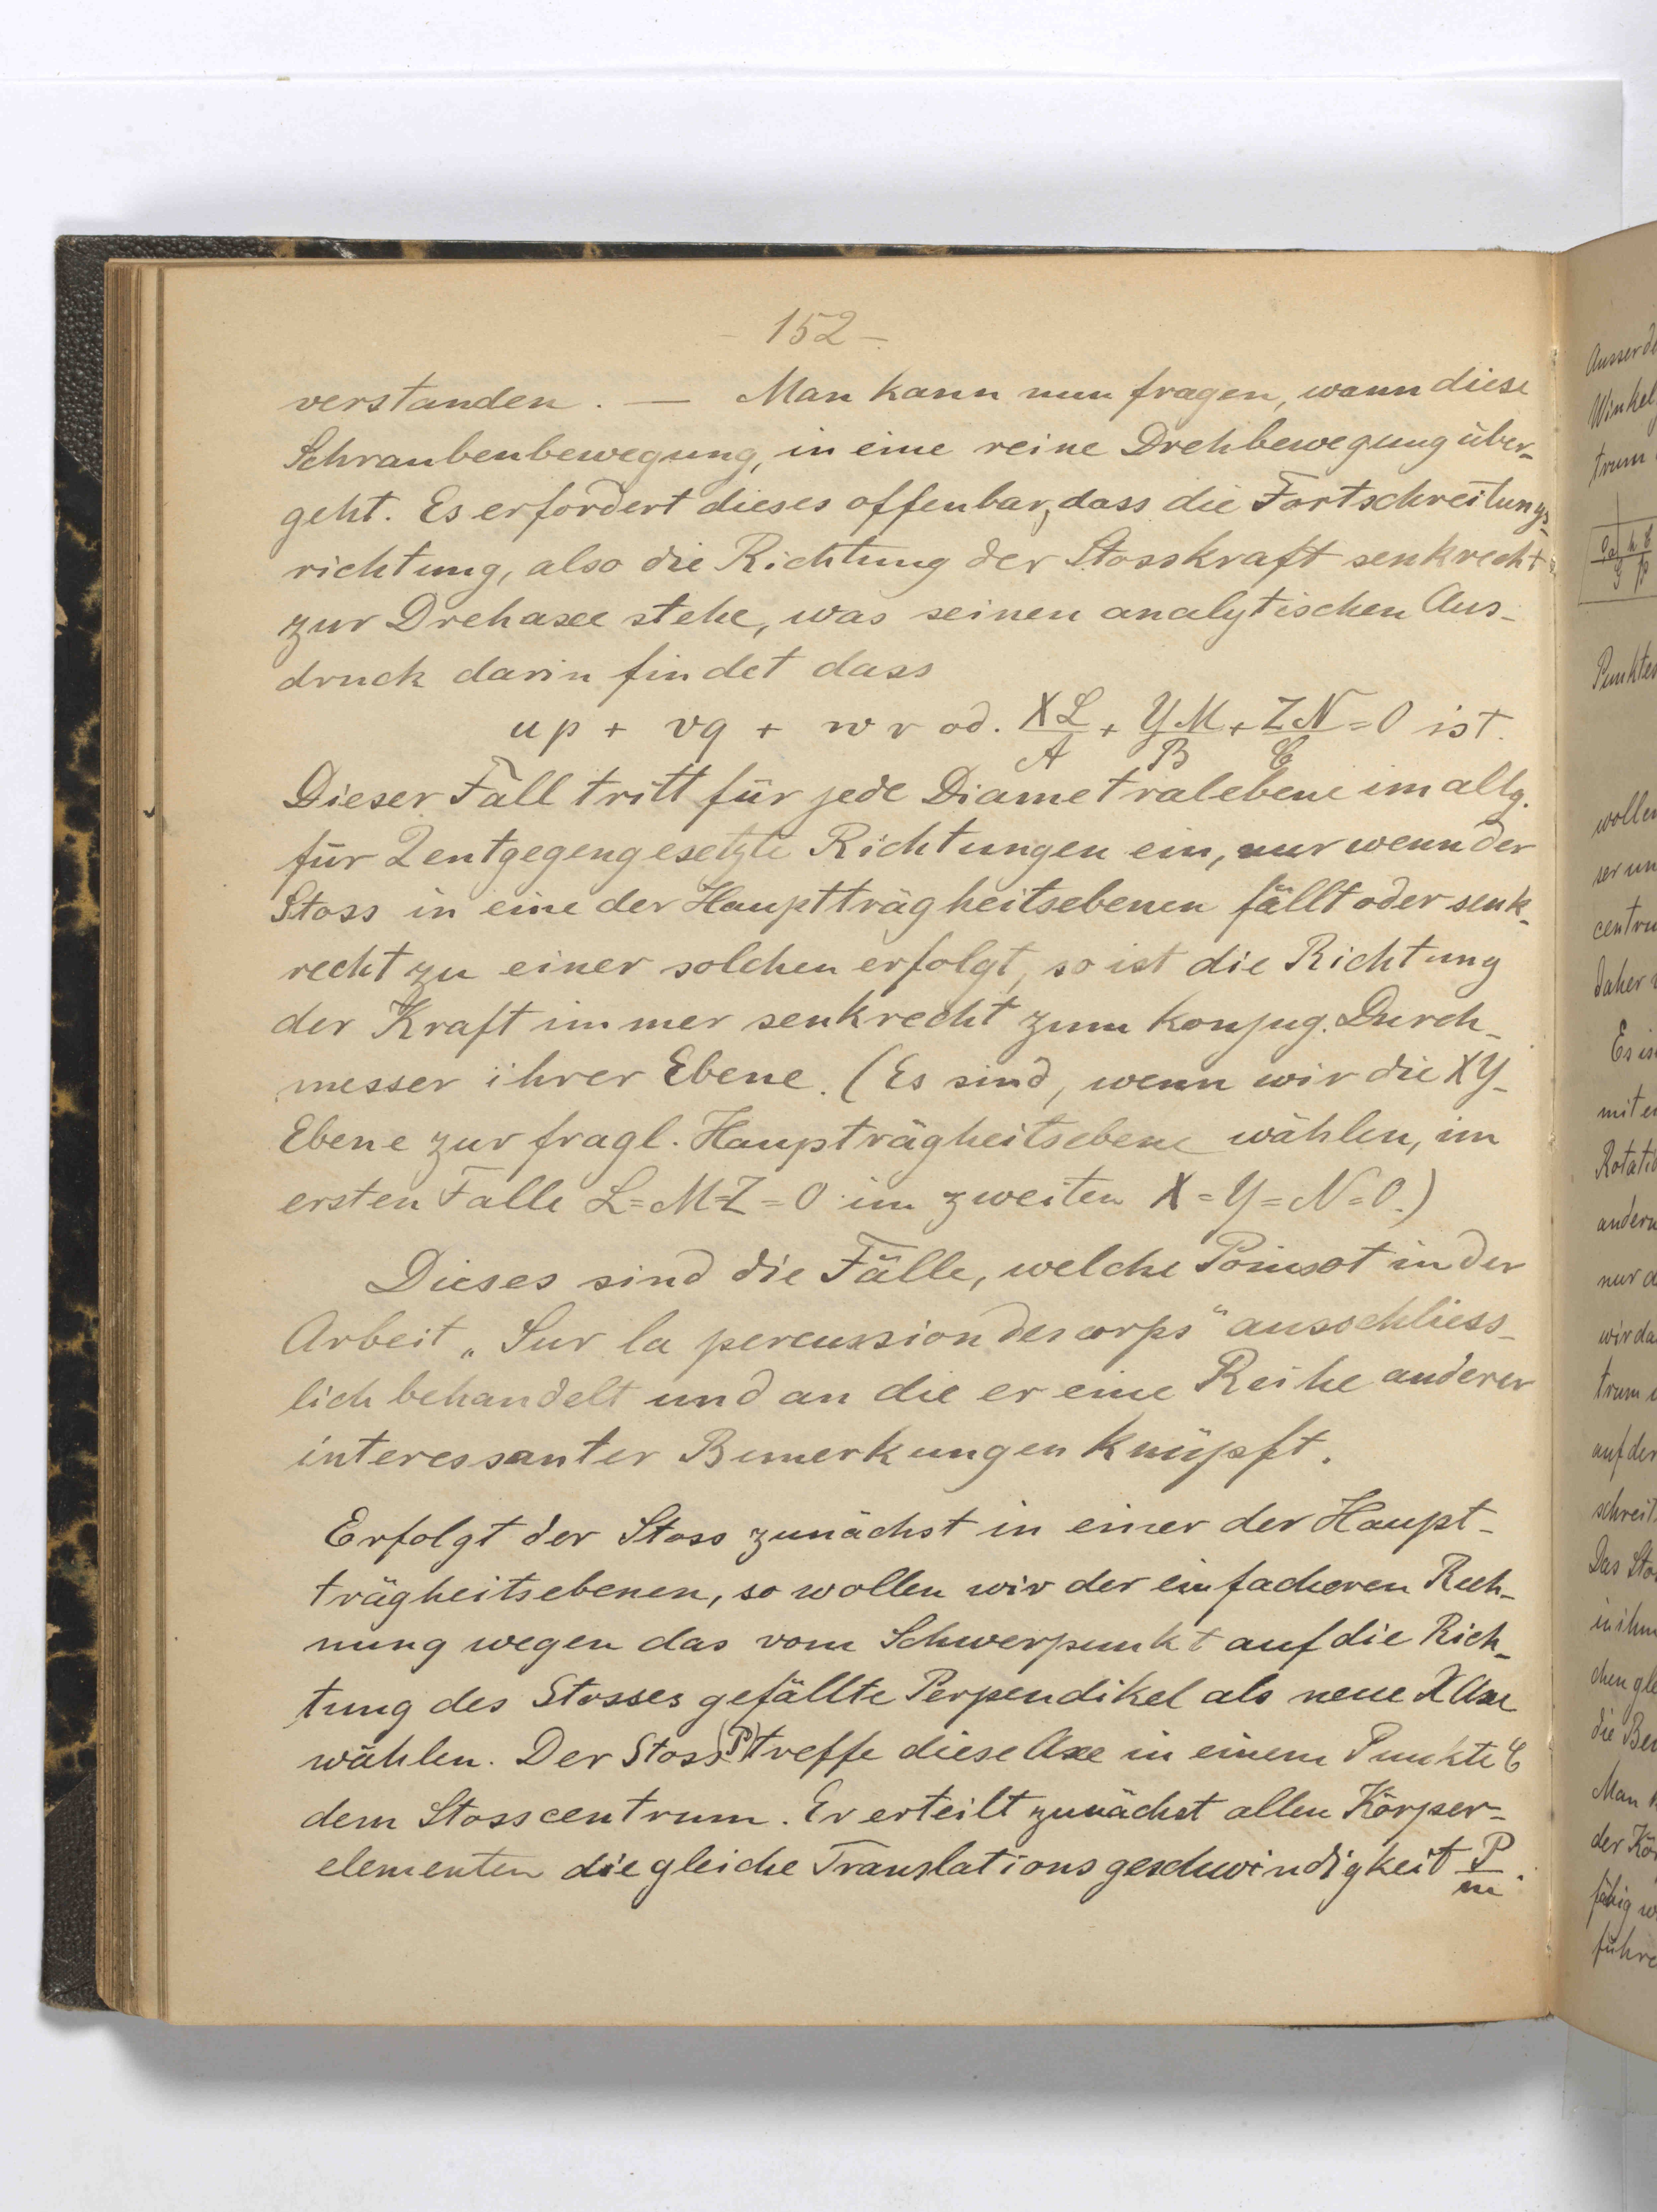 - 152 -
verstanden. — Man kann nun fragen, wann diese
Schraubenbewegung, in eine reine Drehbewegung über-
geht. Es erfordert dieses offenbar, dass die Fortschreitungs-
richtung, also die Richtung der Stosskraft senkrecht
zur Drehaxe stehe, was seinen analytischen Aus-
druck darin findet dass
up + vq + wr od. XL/A + YM/B + ZN/C = 0 ist.
Dieser Fall tritt für jede Diametralebene im allg.
für 2 entgegengesetzte Richtungen ein, nur wenn der
Stoss in eine der Hauptträgheitsebenen fällt oder senk-
recht zu einer solchen erfolgt, so ist die Richtung
der Kraft immer senkrecht zum konjug. Durch-
messer ihrer Ebene. (Es sind, wenn wir die XY-
Ebene zur fragl. Haupträgheitsebene wählen, im
ersten Falle L=M=Z=0 im zweiten X=Y=N=0.)
Dieses sind die Fälle, welche Poinsot in der
Arbeit „Sur la percussion des corps" ausschliess-
lich behandelt und an die er eine Reihe anderer
interessanter Bemerkungen knüpft.
Erfolgt der Stoss zunächst in einer der Haupt-
trägheitsebenen, so wollen wir der einfacheren Rech-
nung wegen das vom Schwerpunkt auf die Rich-
tung des Stosses gefällte Perpendikel als neue X Axe
wählen. Der Stoss (P) treffe diese Axe in einem Punkte C
dem Stosscentrum. Er erteilt zunächst allen Körper-
elementen die gleiche Translationsgeschwindigkeit P/m.
Ausserde
Winkel
trum
Punktes
wollen
ser un
centru
daher
Es is
mit e
Rotati
andern
nur d
wir da
trum
auf der
schreit
Das Sto
in ihm
chen gle
die Be
Man
der Kö
fähig w
führe